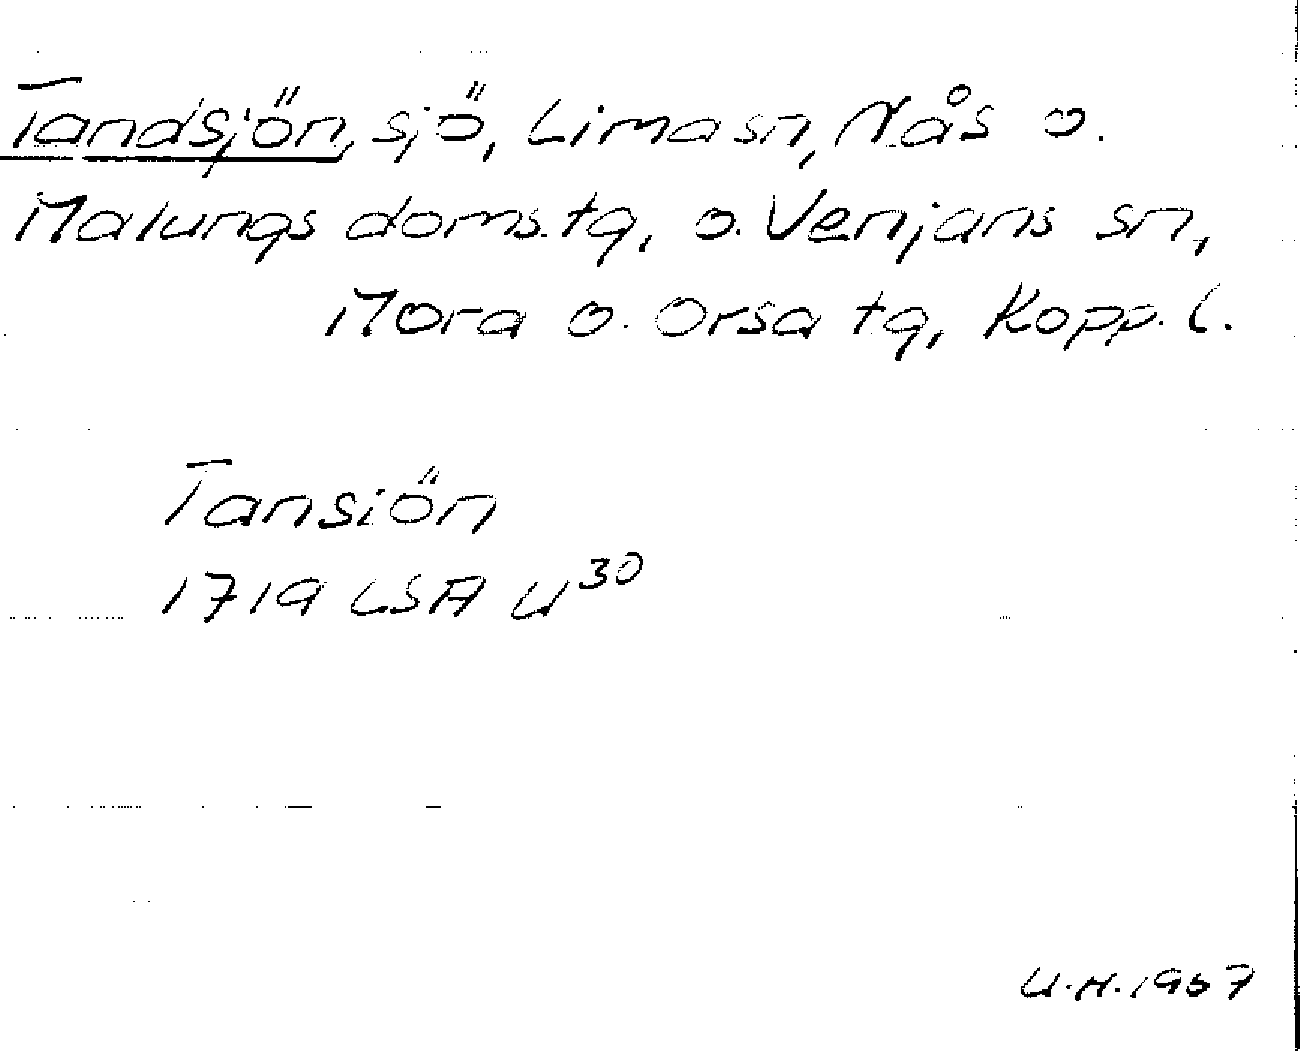 Tandsjön, sjö, Lima sn, Nås o.
Malungs doms. tg, o. Venjans sn,
Mora o. Orsa tg, Kopp. l.
Tansiön
1719 LSA U30
U.H. 1967